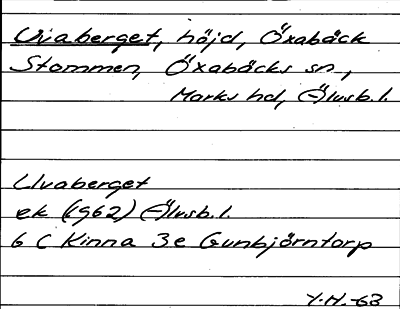 Uvaberget, höjd, Öxabäck
Stommen, Öxabäcks sn,
Marks hd, Älvsb. l.
Uvaberget
ek (1962) Älvsb. l.
6 C Kinna 3e Gunbjörntorp
Y.H.-63